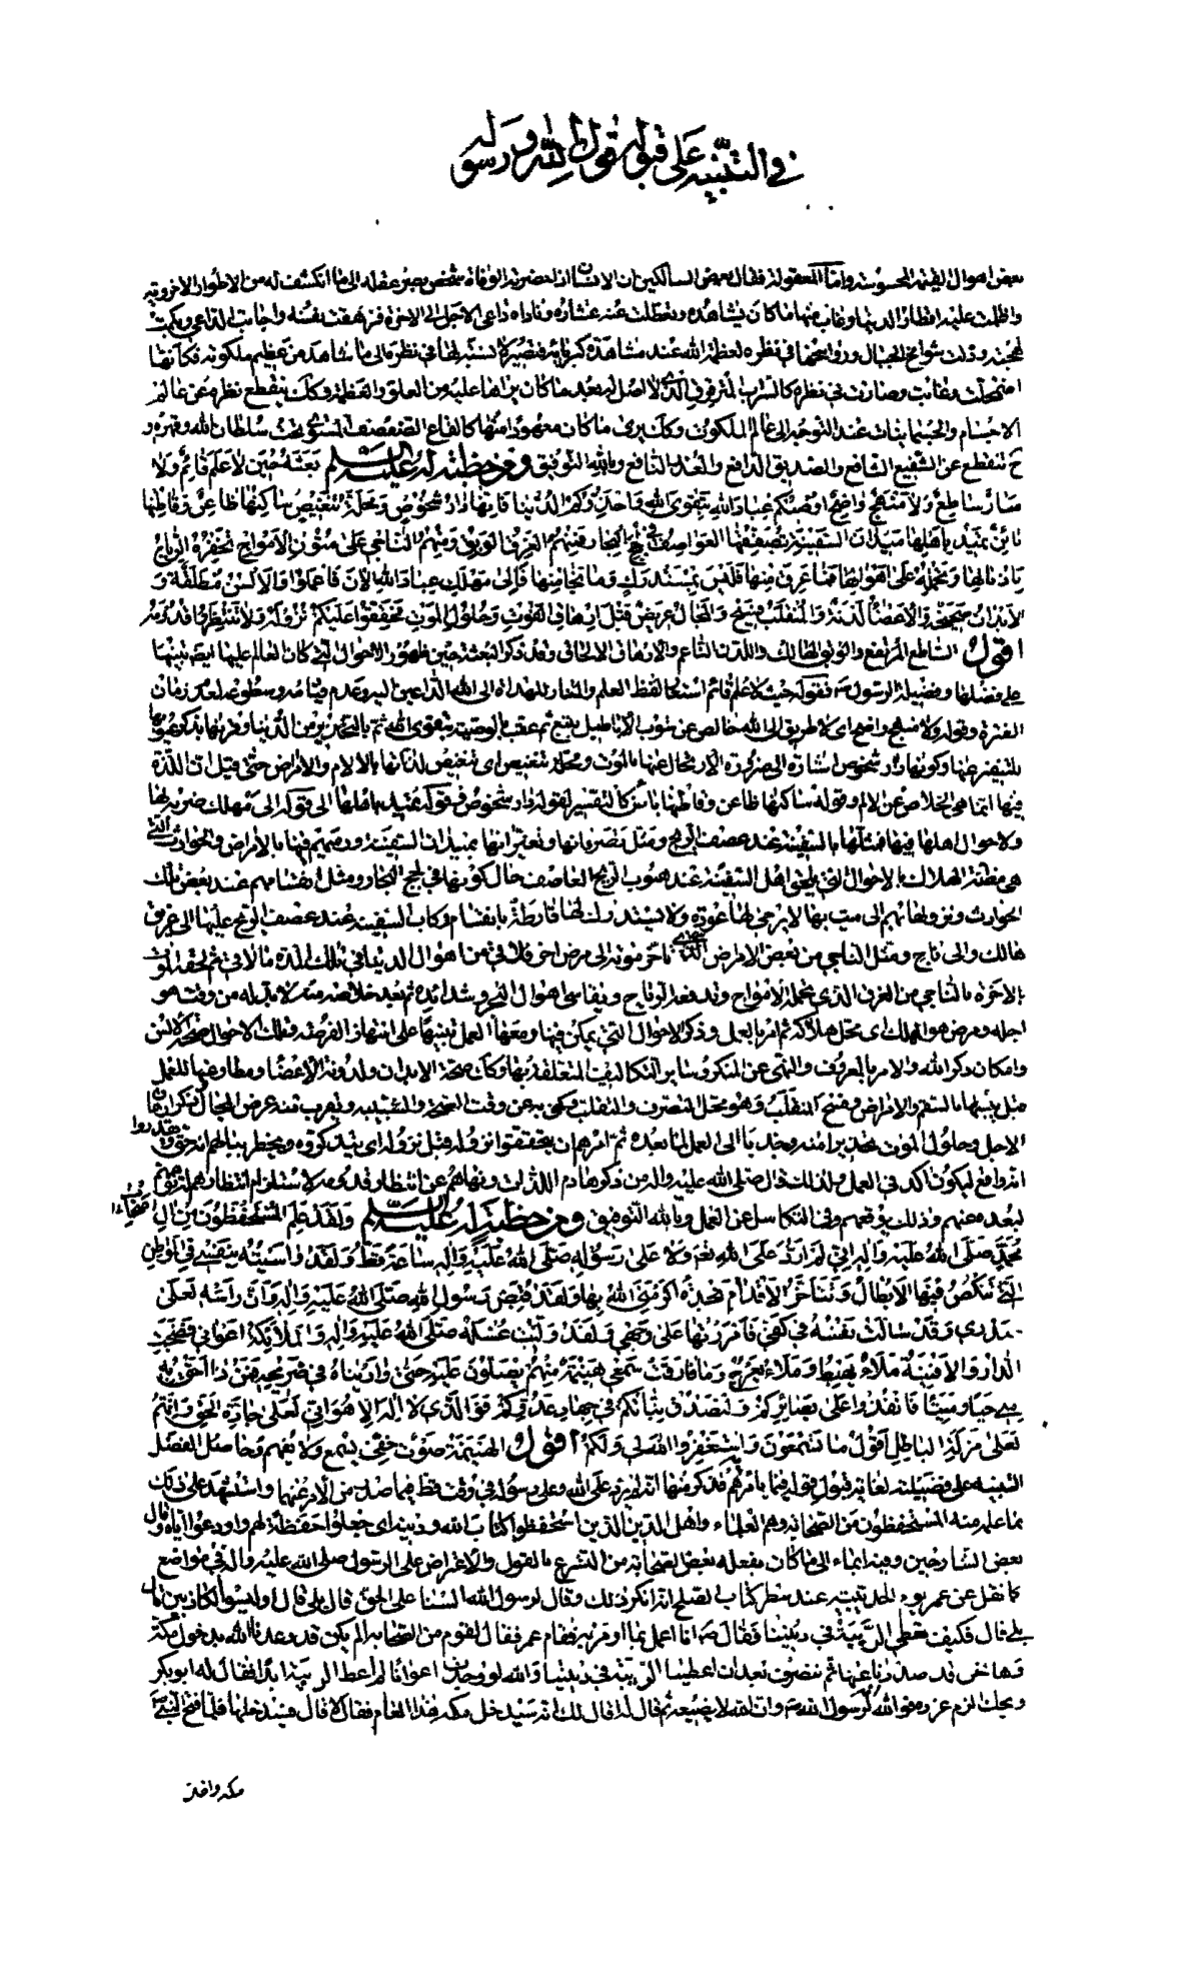 في التنبيه على قبوله قول الله ورسوله
بعض اهوال القيمة المحسوسة وامّا المعقولة فقال بعض السالكين ان الانسان اذا حضرته الوفاة شخص بصر عقله الى ما انكشف له من الاطوار الاخروية
واظلمت عليه اقطار الدنيا وغاب عنها ما كان يشاهده وتعطلت عنه عشاره وناداه داعي الاجل الى الاخرة فزهقت نفسه واجابت الداعي وبكمت
لهجته وذلت شوامخ الجبال ورواسخها في نظره لعظمة الله عند مشاهدة كبريائه فتصير لا نسبة لها في نظره الى ما شاهد من عظيم ملكوته فكانّها
اضمحلت وغابت وصارت في نظره كالسراب المترقرق الذي لا اصل له بعد ما كان يراها عليه من العلو والعظمة وكك ينقطع نظره عن عالم
الاجسام والجسمانيات عند التوجه الى عالم الملكوت وكك يرى ما كان معهودا منها كالقاع الصفصف المستوى تحت سلطان الله وقهره و
ح تنقطع عن الشفيع الشافع والصديق الدافع والعذر النافع وبالله التوفيق ومن خطبة له عليه السلم بعثه حين لا علم قائم ولا
منار ساطع ولا منهج واضح اوصيكم عباد الله بتقوى الله واحذركم الدنيا فانها دار شخوص ومحلة تنغيص ساكنها ظاعن وقاطنها
بائن تميد باهلها ميدان السفينة تصفقها العواصف في لجج البحار فمنهم الغرق الوبق ومنهم الناجي على متون الامواج تحفزه الرياح
باذيالها وتحمله على اهوالها فما غرق منها فليس بمستدرك وما نجا منها فإلى مهلك عباد الله الان فاعملوا والالسن مطلقة و
الابدان صحيحة والاعضاء لدنة والمنقلب فسيح والمجال عريض قبل ارهاق الفوت وحلول الموت فحققوا عليكم نزوله ولا تنتظروا قدومه
اقول الساطع المرتفع والوبق الهالك واللدن الناعم والارهاق الالحاق وقد ذكر البعثة حين ظهور الاحوال التي كان العالم عليها ليتنبه بها
على فضلها وفضيلة الرسول ص فقوله حيث لا علم قائم استعار لفظ العلم والمنار للهداة الى الله الداعين اليه وعدم قيامه وسطوعه لعدم زمان
الفترة وقوله ولا منهج واضح اى لا طريق الى الله خالص عن شوب الاباطيل يتبع ثم عقب بالوصية بتقوى الله ثم بالتحذير من الدنيا وفرتها بذكر عيوبها
للتبغيض عنها وكونها دار شخوص اشارة الى ضرورة الارتحال عنها بالموت ومحلة تنغيص اى تنغيص لذاتها بالالام والامراض حتى قيل ان اللذة
فيها انما هي الخلاص عن الالم وقوله ساكنها ظاعن وقاطنها بائن كالتفسير لقوله دار شخوص وقوله تميد باهلها الى قوله الى مهلك ضرب لها
ولاحوال اهلها فيها مثلا بالسفينة عند عصف الريح ومثل تصرفاتها وتغيراتها بميدان السفينة ورميهم فيها بالامراض والحوادث التي
هي مظنة الهلاك بالاحوال التي يلحق اهل السفينة عند هبوب الريح العاصف حال كونها في لجج البحار ومثل انقسامهم عند بعض تلك
الحوادث ونزولها بهم الى ميت بها لا يرجى لها عوده ولا يستدرك لها فارطة بانقسام ركاب السفينة عند عصف الريح عليها الى غريق
هالك والى ناج ومثل الناجي من بعض الامراض الذي تاخر موته الى مرض اخر فلاقى من اهوال الدنيا في تلك المدة ما لاقى ثم لحقه الموت
بالاخرة بالناجي من الغرق الذي تحمله الامواج وتدفعه الرياح ويقاسي اهوال البحر وشدائده ثم بعد خلاصه منه لا بد له من وقت هو
اجله ومرض هو المهلك اى محل هلاكه ثم امر بالعمل وذكر الاحوال التي يمكن فيها ومعها العمل تنبيها على انتهاز الفرصة وتلك الاحوال صحة الالسن
وامكان ذكر الله والامر بالمعروف والنهى عن المنكر وساير التكاليف المتعلقة بها وكان صحة الابدان ولدونة الاعضاء ومطاوعتها للعمل
قبل يبسها بالسقم والامراض وفسح المنقلب وهو محل المتصرف والتقلب وكنى به عن وقت الصحة والشبيبة ويقرب منه عرض المجال فذكر ارهاق
الاجل وحلول الموت تحذيرا منه وجذبا الى العمل لما بعده ثم امرهم ان يحققوا نزوله قبل نزوله اى يتذكروه ويخطر ببالهم انه حق وان يقدروا
انه واقع ليكون آكد في العمل ولذلك قال صلى الله عليه واله من ذكر هادم اللذات ونهاهم عن انتظار قدومه لاستلزام انتظارهم له توقع
لبعده عنهم وذلك يوقعهم في التكاسل عن العمل وبالله التوفيق ومن خطبة له عليه السلم ولقد علم المستحفظون من صحابة
محمد صلى الله عليه واله اني لم ارد على الله ولا على رسوله صلى الله عليه واله ساعة قط ولقد واسيته بنفسي في المواطن
التي تنكص فيها الابطال وتتاخر الاقدام نجدة اكرمني الله بها ولقد قبض رسول الله صلى الله عليه واله وان راسه لعلى
صدري وقد سالت نفسه في كفي فامررتها على وجهي ولقد وليت غسله صلى الله عليه واله والملائكة اعواني فضجت
الدار والافنية ملاء يهبط وملاء يعرج وما فارقت سمعي هينمة منهم يصلون عليه حتى واريناه في ضريحه فمن ذا احق به
مني حيا وميتا فانفذوا على بصائركم ولتصدق نياتكم في جهاد عدوكم فوالذي لا اله الا هو اني لعلى جادة الحق وانهم
لعلى مزلة الباطل اقول ما تسمعون واستغفر الله لي ولكم اقول الهينمة صوت خفي يسمع ولا يفهم وحاصل الفصل
التنبيه على فضيلته لغاية قبول قوله فيما يامرهم فذكر منها انه لم يرد على الله وعلى رسوله في وقت قط فيما صدر من الامر عنهما واستشهد على ذلك
بما علمه منه المستحفظون من الصحابة وهم العلماء واهل الدين الذين استحفظوا كتاب الله ودينه اى جعلوا حفظة لهم واودعوا اياه وقال
بعض الشارحين وفيه ايماء الى ما كان يفعله بعض الصحابة من التسرع بالقول والاعتراض على الرسول صلى الله عليه واله في مواضع
كما نقل عن عمر يوم الحديبية عند سطر كتاب الصلح انه انكر ذلك وقال لرسول الله السنا على الحق قال بلى قال اوليسوا الكاذبين قال
بلى قال فكيف تعطى الريبة في ديننا فقال ص انا اعمل بما اومر به فقام عمر فقال لقوم من الصحابة الم يكن قد وعدنا الله بدخول مكة
وها نحن قد صددنا عنها ثم ننصرف بعد ان اعطينا الريبة في ديننا والله لو وجدت اعوانا لم اعط الريبة ابدا فقال له ابو بكر
ويحك الزم غرزه فوالله انه لرسول الله ص وان الله لا يضيعه ثم قال له اقال لك انه سيدخل مكة هذا العام فقال لا قال فسيدخلها فلما فتح النبي ص
مكة واخذ